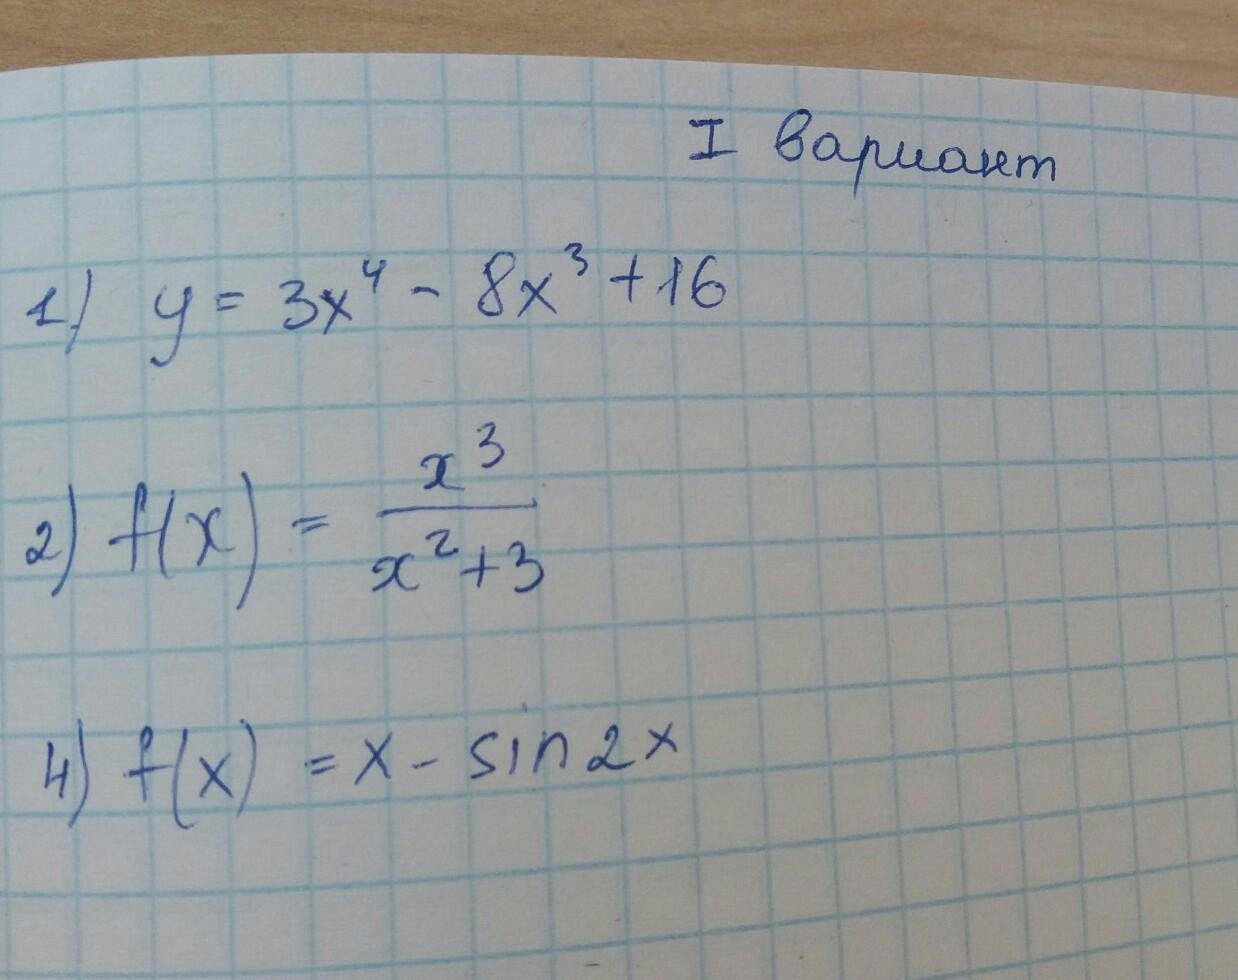 I вариант
1) y = 3x⁴ - 8x³ + 16
2) f(x) = x³ / (x² + 3)
4) f(x) = x - sin2x